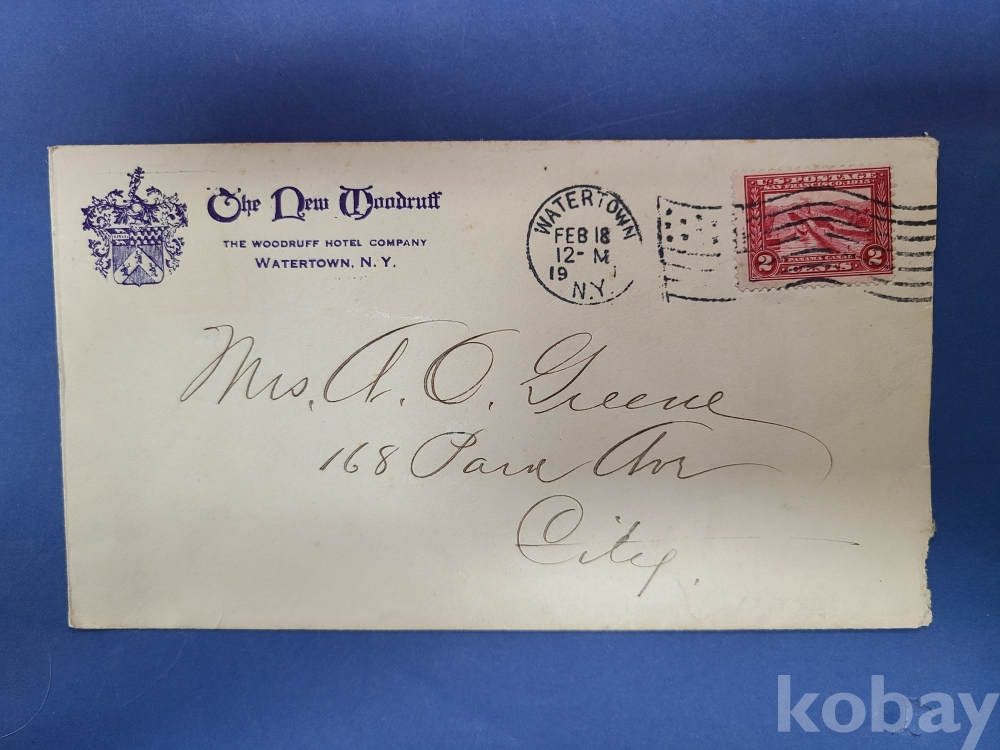 The New Woodruff
THE WOODRUFF HOTEL COMPANY
WATERTOWN, N.Y.
WATERTOWN
FEB 18
12-M
19
N.Y.
U.S. POSTAGE
SAN FRANCISCO 1915
PANAMA CANAL
2 CENTS 2
Mrs. A. O. Greene
168 Park Ave
City.
kobay